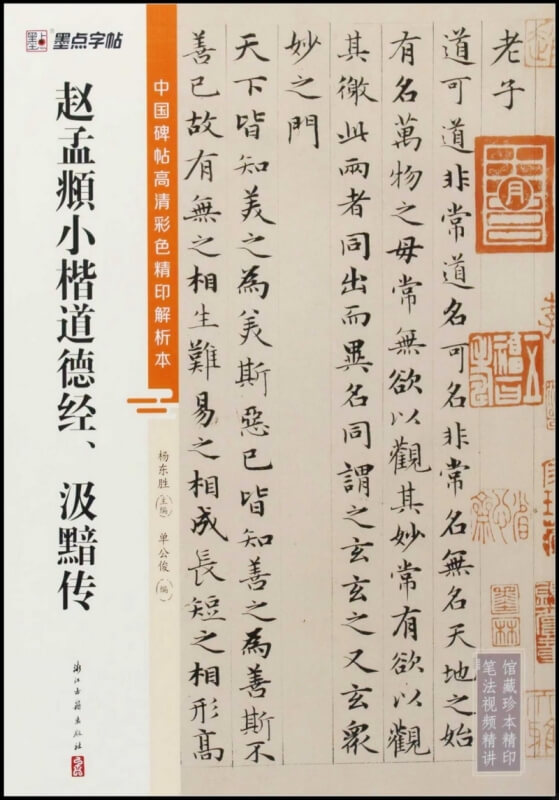 墨点字帖
赵孟頫小楷道德经、汲黯传
中国碑帖高清彩色精印解析本
杨东胜 主编 单公俊 编
浙江古籍出版社
老子
道可道非常道名可名非常名無名天地之始
有名萬物之母常無欲以觀其妙常有欲以觀
其徼此兩者同出而異名同謂之玄玄之又玄衆
妙之門
天下皆知美之為美斯惡已皆知善之為善斯不
善已故有無之相生難易之相成長短之相形高
馆藏珍本精印
笔法视频精讲